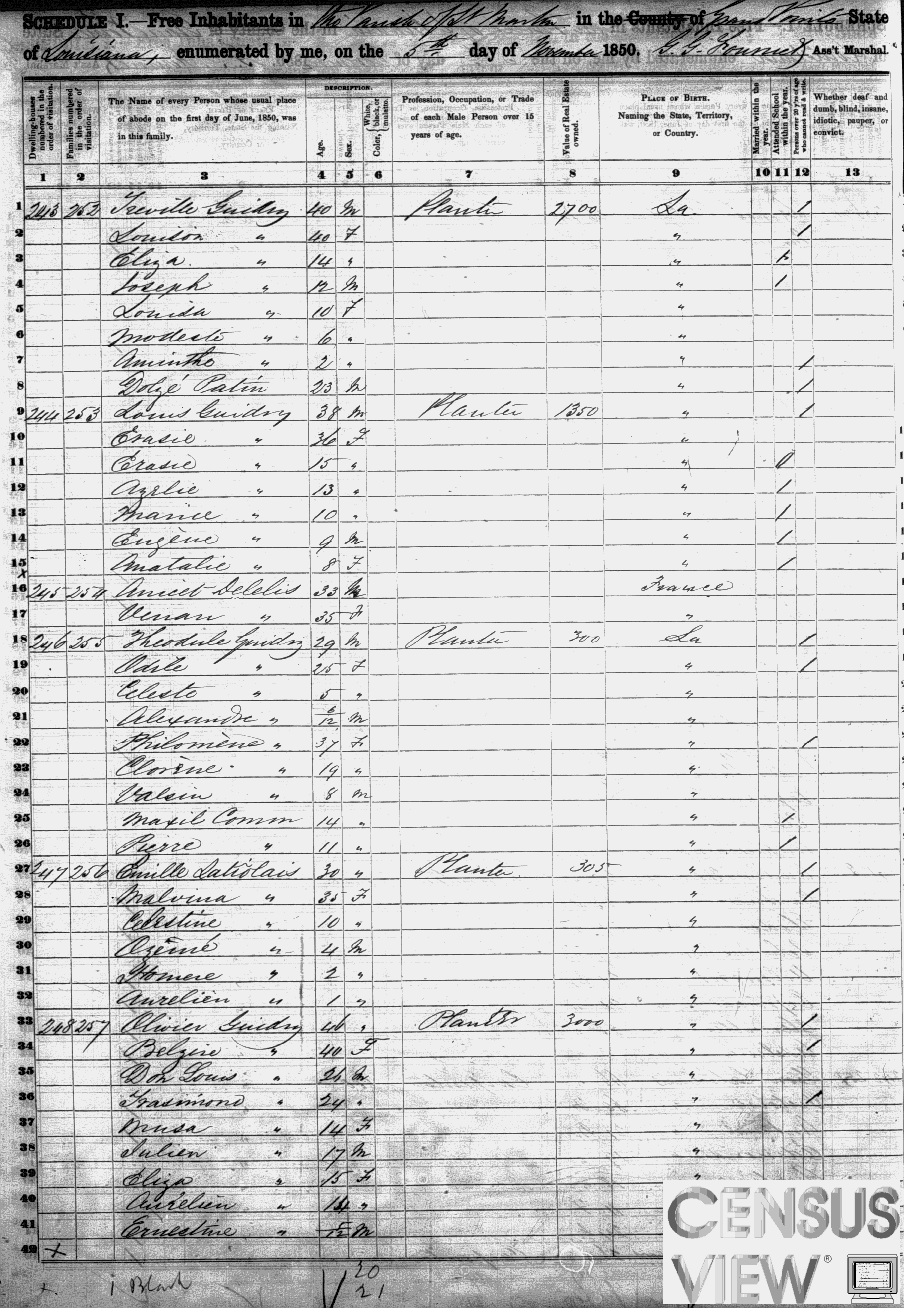 SCHEDULE I.—Free Inhabitants in the Parish of St Martin in the County of Grand Points State
of Louisiana, enumerated by me, on the 5th day of November 1850. Ass't Marshal.
Dwelling-houses numbered in the order of visitation.
Families numbered in the order of visitation.
The Name of every Person whose usual place of abode on the first day of June, 1850, was in this family.
DESCRIPTION.
Age.
Sex.
Color, White, black, or mulatto.
Profession, Occupation, or Trade of each Male Person over 15 years of age.
Value of Real Estate owned.
PLACE OF BIRTH. Naming the State, Territory, or Country.
Married within the year.
Attended School within the year.
Persons over 20 y'rs of age who cannot read & write.
Whether deaf and dumb, blind, insane, idiotic, pauper, or convict.
1 2 3 4 5 6 7 8 9 10 11 12 13
1 243 252 Treville Guidry 40 M Planter 2700 La 1
2 Louison " 40 F " 1
3 Eliza " 14 " "
4 Joseph " 12 M " 1
5 Louida " 10 F "
6 Modeste " 6 " "
7 Aminthe " 2 " " 1
8 Dolzé Patin 23 M " 1
9 244 253 Louis Guidry 38 M Planter 1350 " 1
10 Erasie " 36 F "
11 Erasie " 15 " "
12 Azelie " 13 " " 1
13 Marice " 10 " " 1
14 Eugène " 9 M " 1
15 Anatalie " 8 F " 1
16 245 254 Amict Delelis 33 M France
17 " 35 F "
18 246 255 Theodule Guidry 29 M Planter 300 La 1
19 Odile " 25 F " 1
20 Celeste " 5 " "
21 Alexandre " 6/12 M "
22 Philomène " 37 F " 1
23 Clorène " 19 " "
24 Valsin " 8 M "
25 Maxil 14 " " 1
26 Pierre " 11 " " 1
27 247 256 Emille Latiolais 30 " Planter 305 " 1
28 Malvina " 35 F " 1
29 Celestine " 10 " "
30 Ozémé " 4 M "
31 Homere " 2 " "
32 Aurelien " 1 " "
33 248 257 Olivier Guidry 46 " Planter 3000 " 1
34 Belzire " 40 F " 1
35 Don Louis " M "
36 Trasimond " 24 " " 1
37 " 14 F "
38 Julien " 17 M "
39 Eliza " 15 F "
40 Aurelien " 14 "
41 Ernestine " M
42
1 Black
20
21
CENSUS
VIEW®